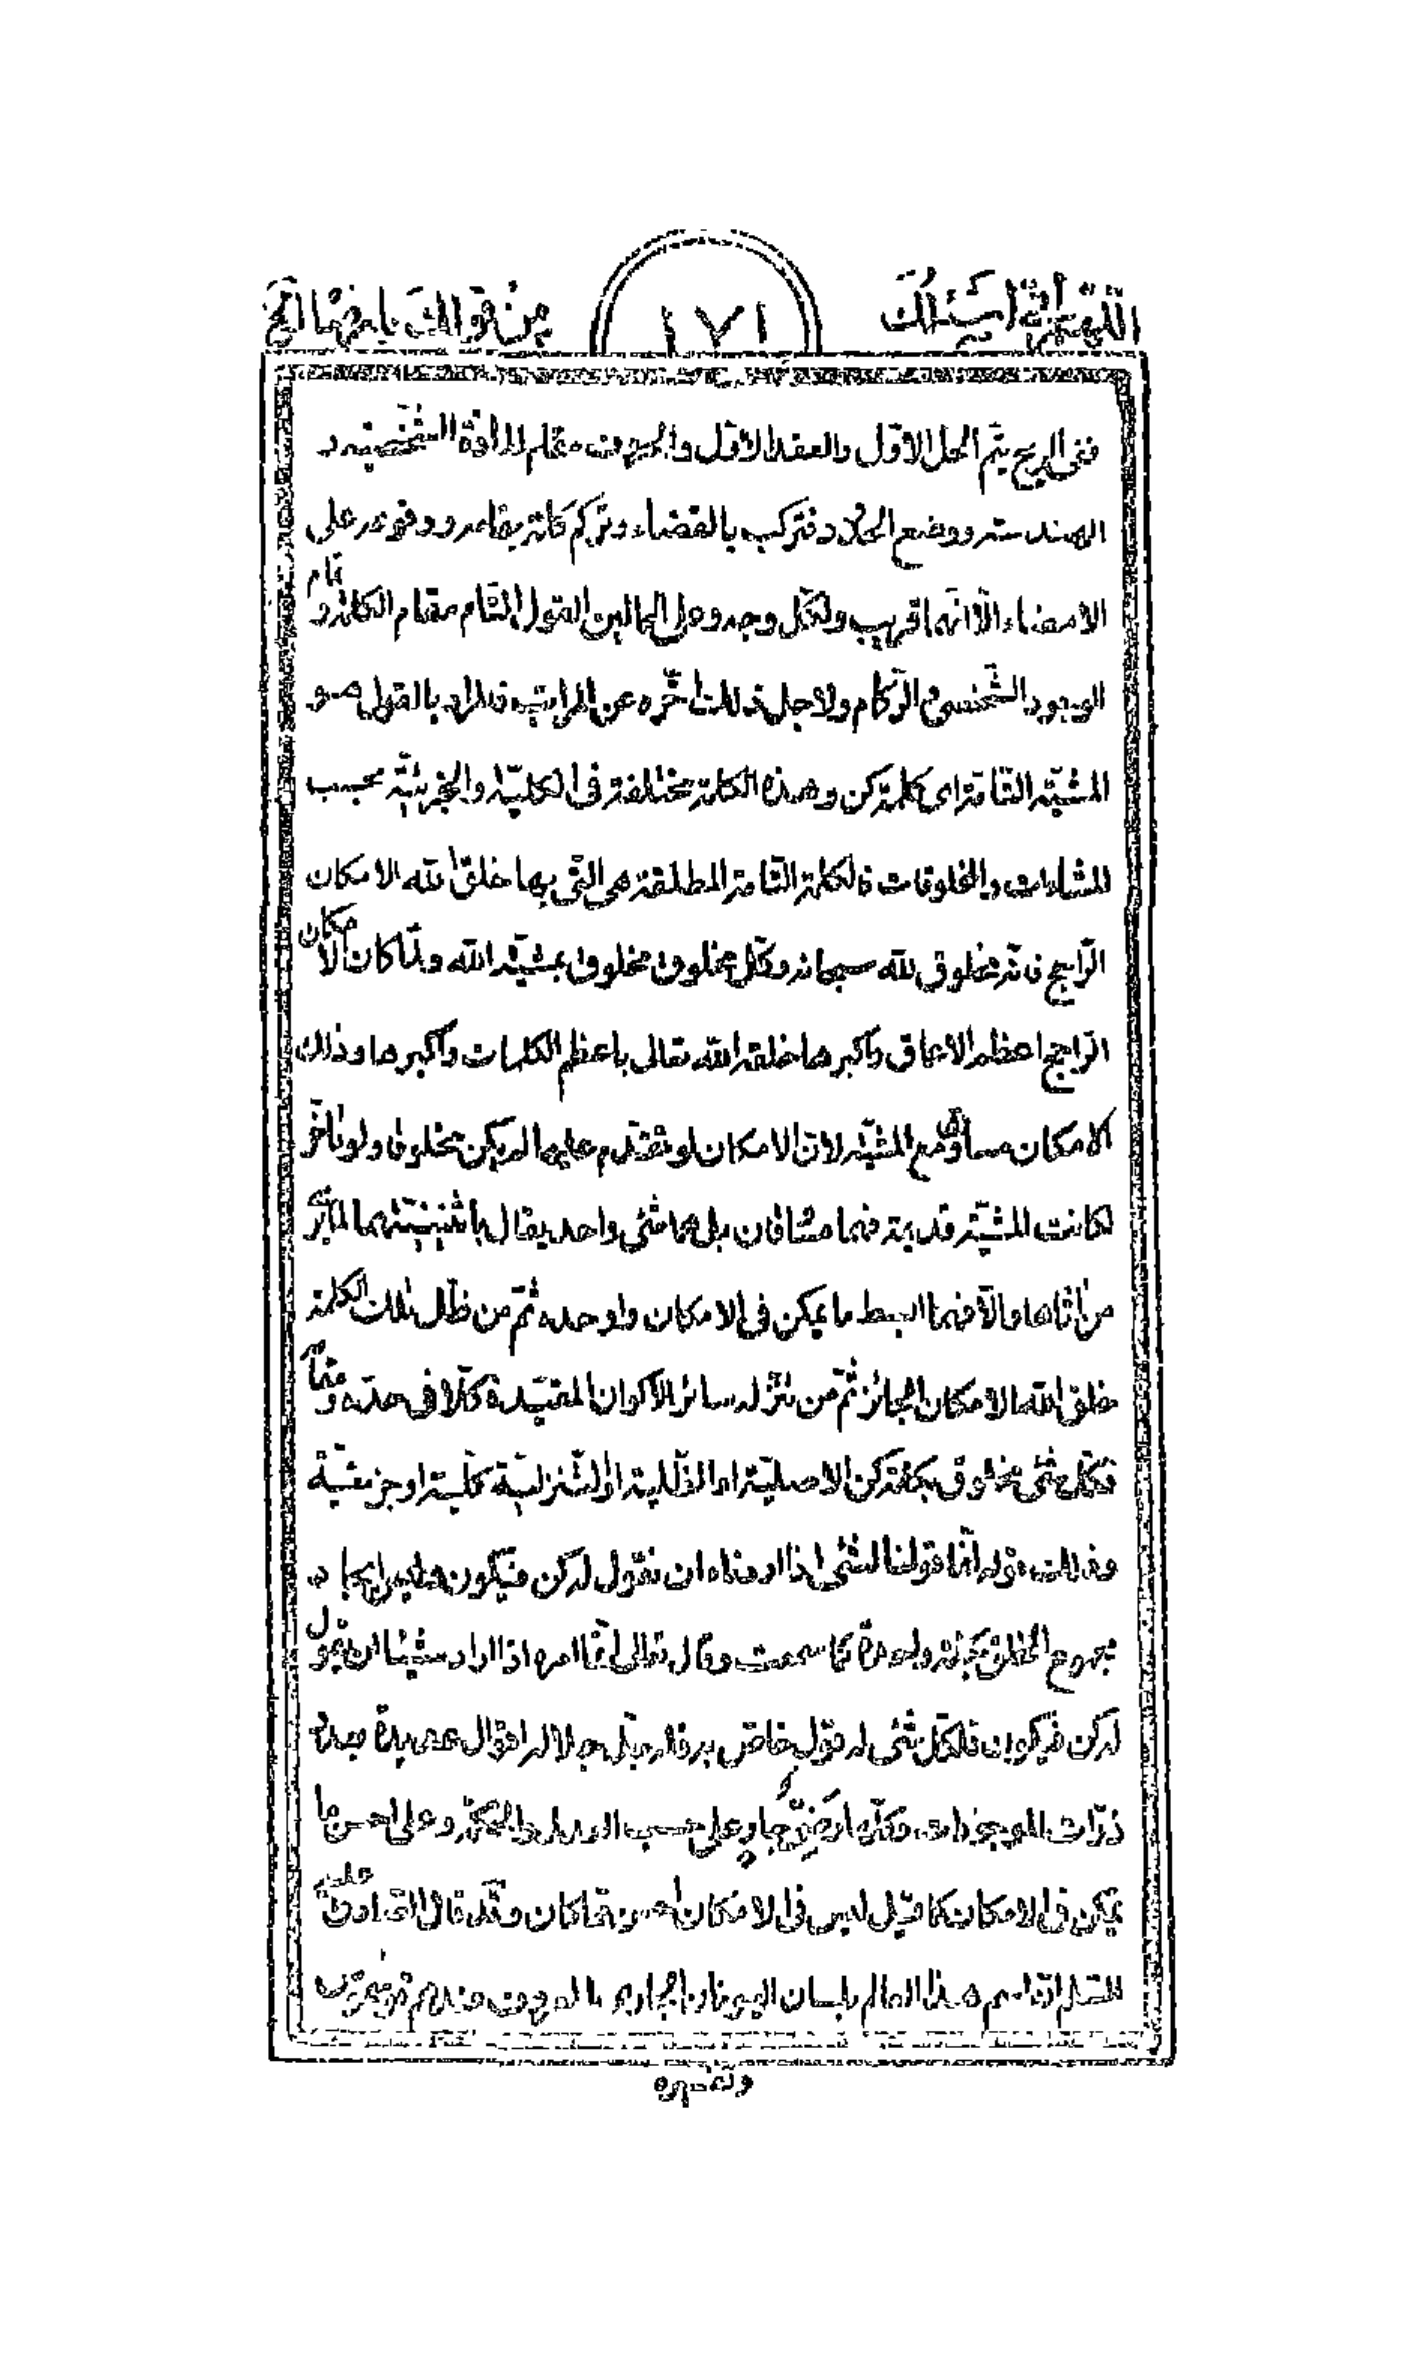 اللّهمّ إنّي أسئلك
١٧١
من قولك بأرضاه الخ
ففى الريح يتم الحل الاوّل والعقد الاوّل و مقام المادّة الشخصيّة و
الهندسة ووضع الحدود فتركب بالقضاء وتركم كانه بقاعه ووقوعه على
الامضاء الّا انّها قريب ولكلّ وجه وعلى الحالين القول التّام مقام الكلمة و تمام
الوجود الشخصى و الرّكام ولاجل ذلك اخّره عن المراتب فالمراد بالقول هو
المشيّة التّامّة اى كلمة كن وهذه الكلمة مختلفة فى الكليّة والجزئيّة بحسب
المشاءات والمخلوقات فالكلمة التّامة المطلقة هى التّى بها خلق الله الامكان
الرّاجح فانّه مخلوق لله سبحانه وكلّ مخلوق مخلوق بمشيّة الله ولمّا كان الامكان
الرّاجح اعظم الاعماق واكبرها خلقه الله تعالى باعظم الكلمات واكبرها وذلك
الامكان مساوق مع المشيّة لانّ الامكان لو تقدّم عليها لم يكن مخلوقا ولو تأخّر
لكانت المشيّة قديمة فهما مساوقان بل هما شئ واحد يقال باثنينيّتهما
من اثارها والّا فهما ابسط ما يمكن فى الامكان واوحده ثمّ من ظلّ تلك الكلمة
خلق الله الامكان الجائز ثمّ من تنزّله سائر الاكوان المقيّدة كلّا فى حدّه و مقامه
فكلّ شئ مخلوق بكلمة كن الاصليّة او الظّليّة او التّنزليّة كليّة او جزئيّة
وذلك قوله انّما قولنا لشئ اذا اردناه ان نقول له كن فيكون فليس ايجاد
مجموع الخلق بكلمة واحدة كما سمعت وقال تعالى انّما امره اذا اراد شيئا ان يقول
له كن فيكون فلكلّ شئ له قول خاصّ به فله جلّ جلاله اقوال عديدة بعدد
ذرّات الموجودات وكلّها جار على حسب والحكمة وعلى احسن ما
يمكن فى الامكان كما قيل ليس فى الامكان احسن ممّا كان وقد قال الصّادق عليه
السّلم انّ اسم هذا العالم بلسان اليونان الجارى
وتفسيره